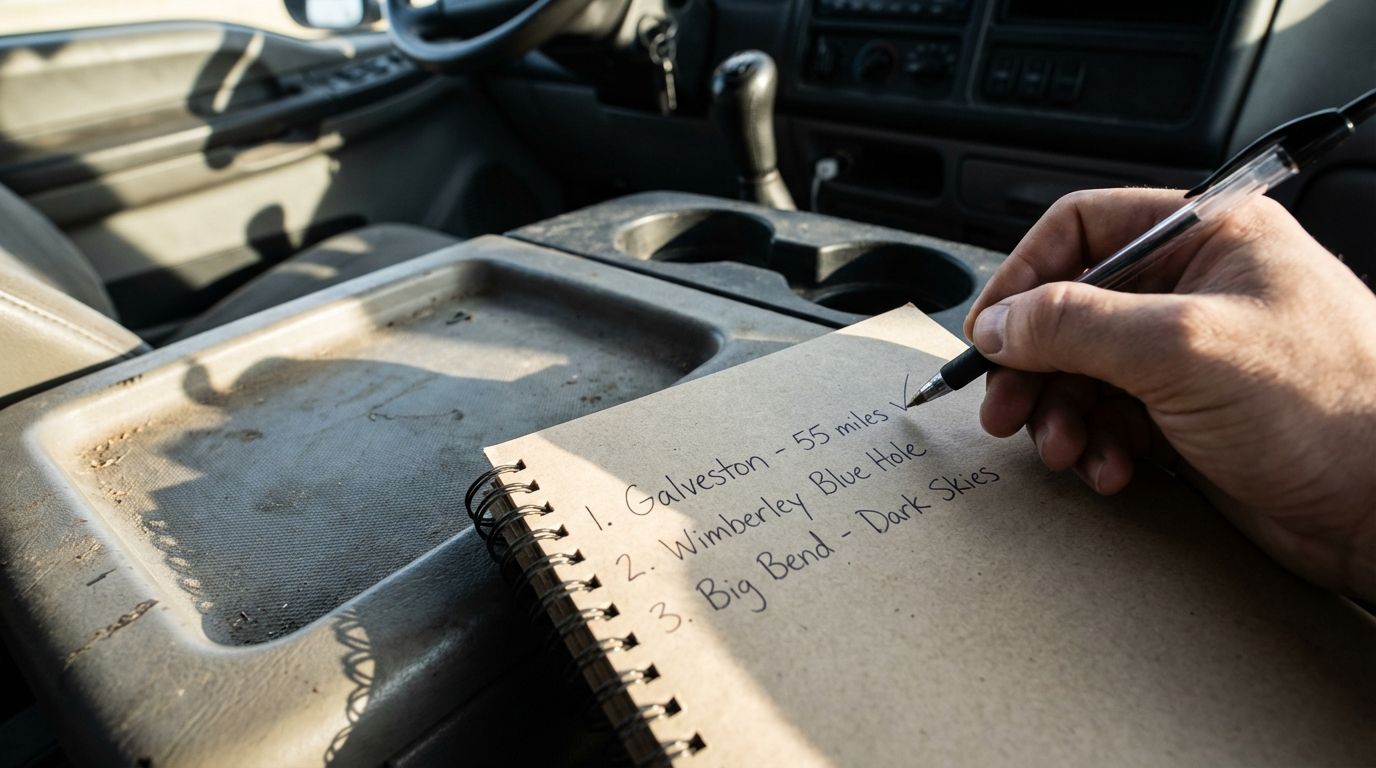 1. Galveston - 55 miles ✓
2. Wimberley Blue Hole
3. Big Bend - Dark Skies